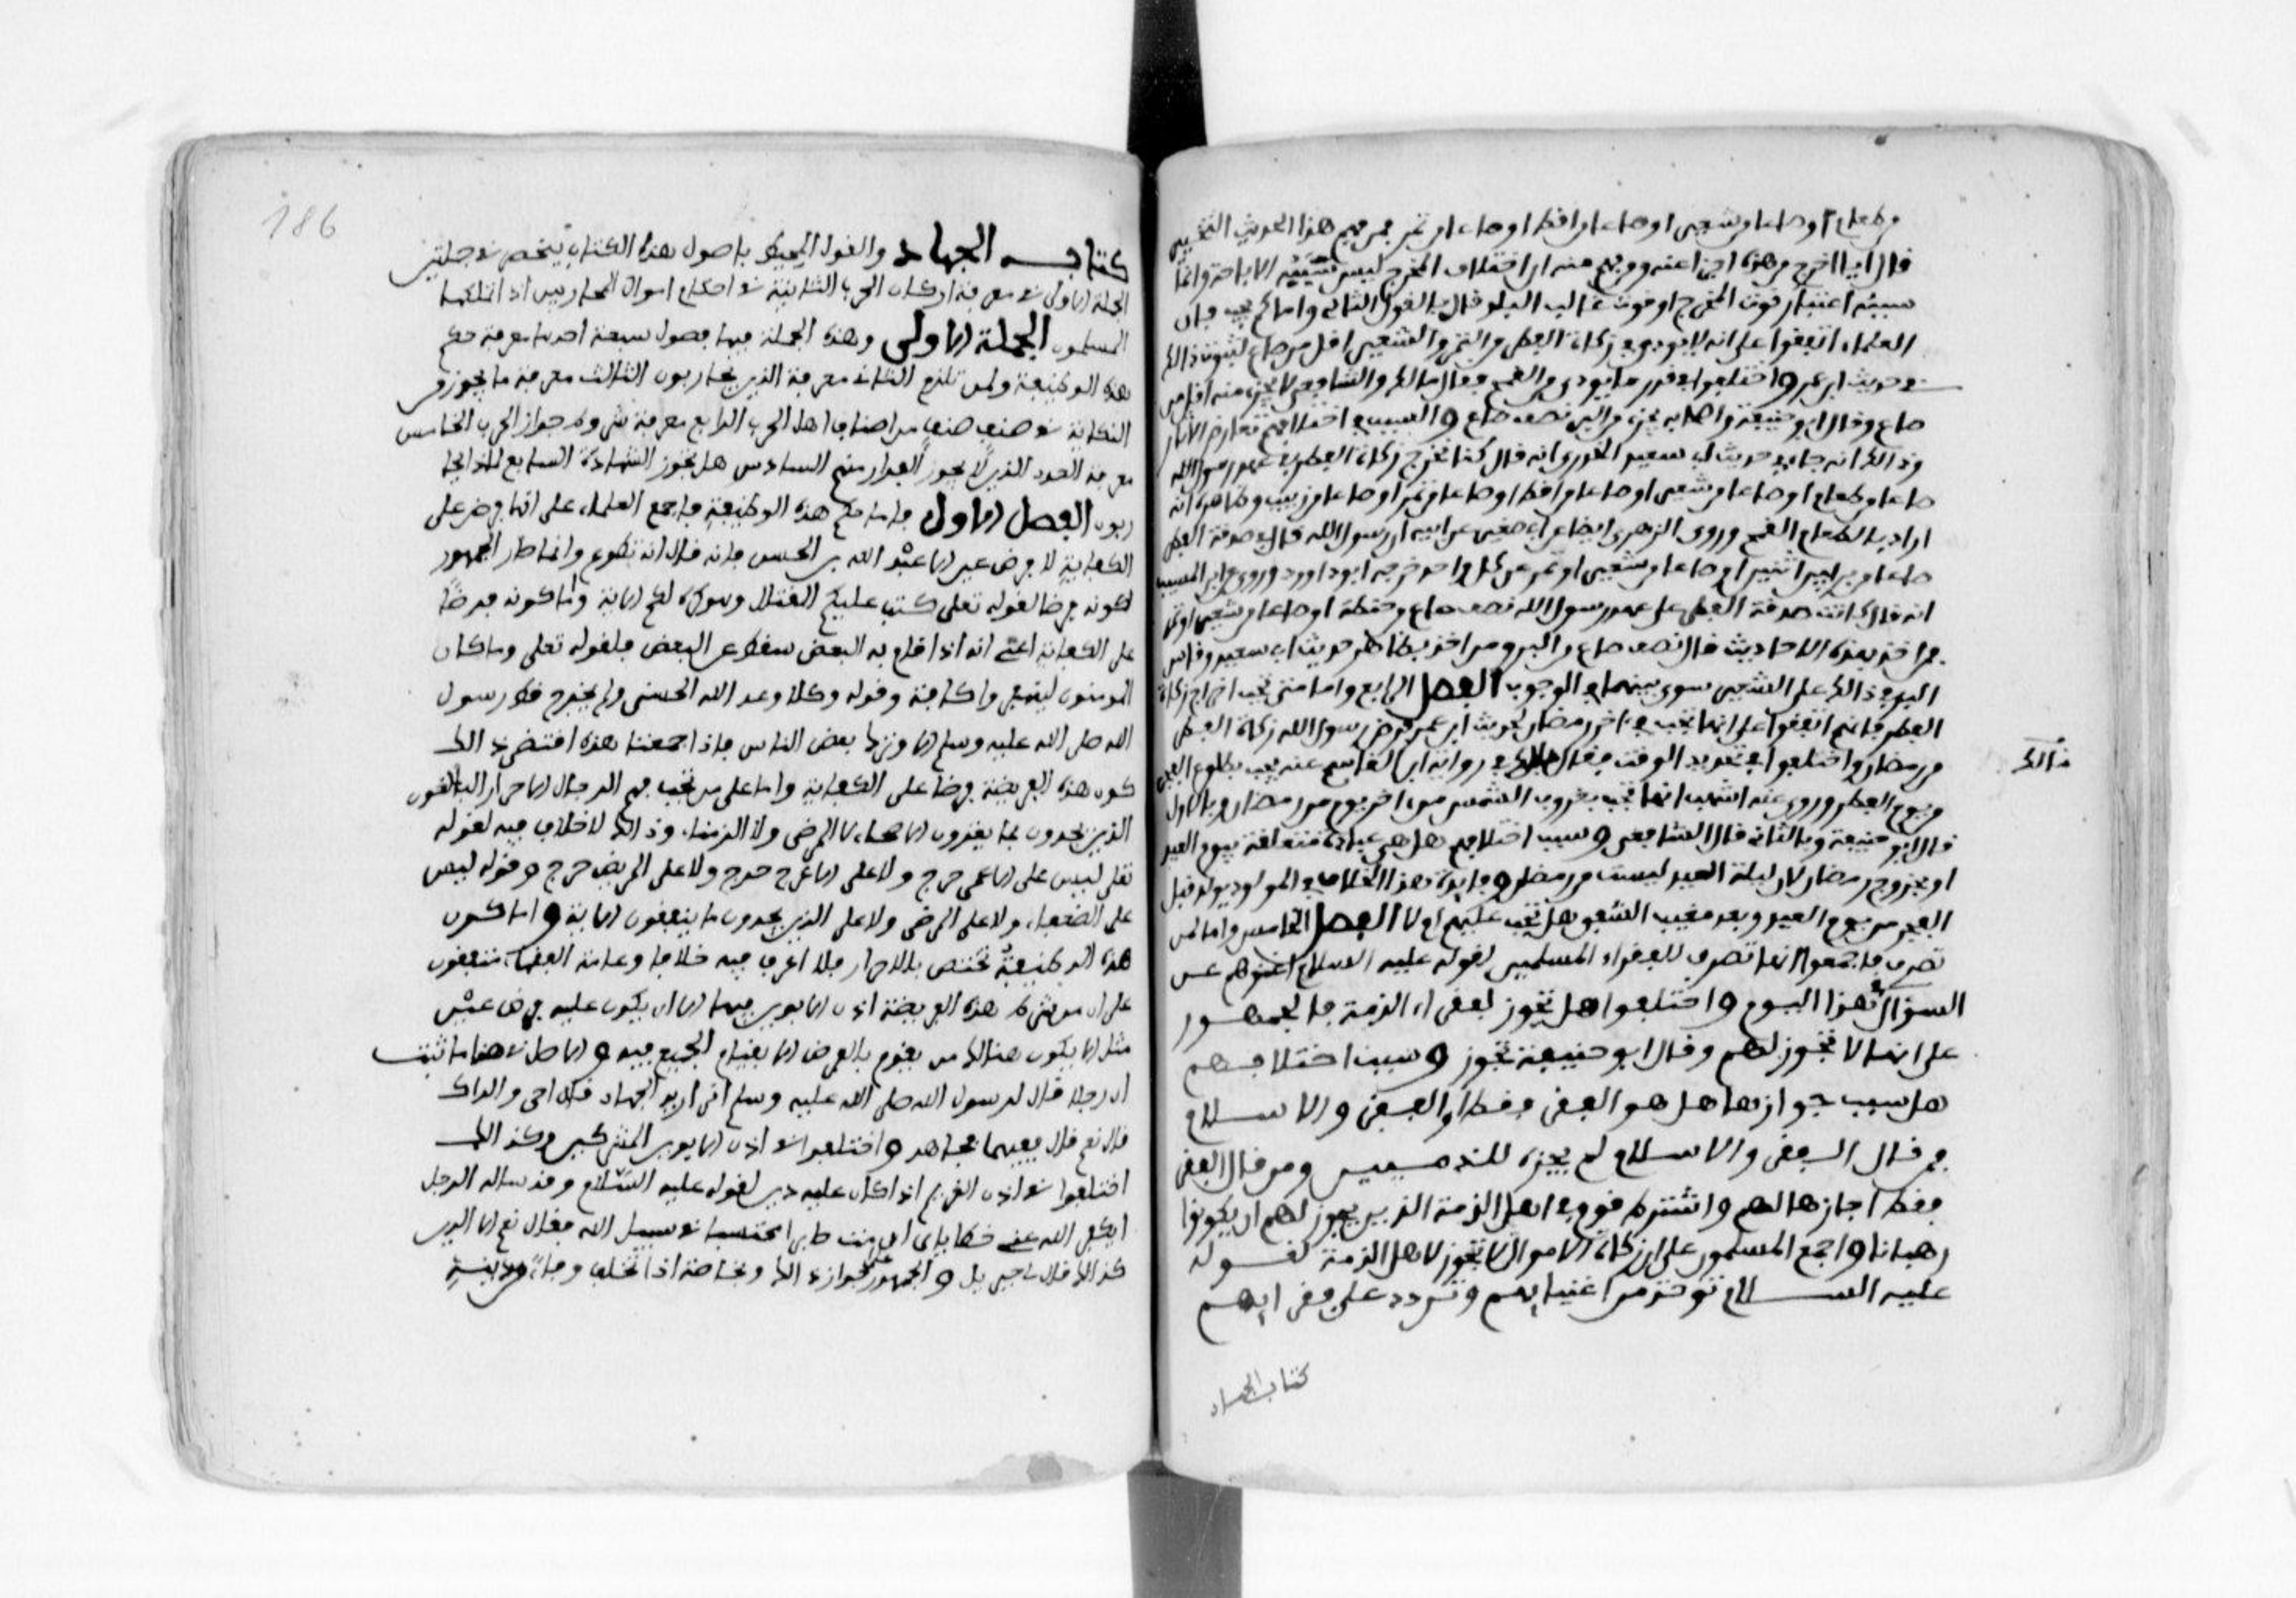 من طعام أو صاعا من شعير أو صاعا من أقط أو صاعا من تمر فمن فهم من هذا الحديث التخيير
قال أيا أخرج من هذه أجزأ عنه ومن فهم منه أن اختلاف المخرج ليس سببه الإباحة وإنما
سببه اعتبار قوت المخرج أو قوت غالب البلد قال بالقول الثاني وأما كم يجب فإن
العلماء اتفقوا على أنه لا يؤدى في زكاة الفطر من التمر والشعير أقل من صاع لثبوت ذلك
في حديث ابن عمر واختلفوا في قدر ما يؤدى من القمح فقال مالك والشافعي لا يجزئ منه أقل من
صاع وقال أبو حنيفة وأصحابه يجزئ من البر نصف صاع والسبب في اختلافهم تعارض الآثار
وذلك أنه جاء في حديث أبي سعيد الخدري أنه قال كنا نخرج زكاة الفطر في عهد رسول الله
صاعا من طعام أو صاعا من شعير أو صاعا من أقط أو صاعا من تمر أو صاعا من زبيب وظاهره أنه
أراد بالطعام القمح وروى الزهري أيضا عن أبي صعير عن أبيه أن رسول الله قال في صدقة الفطر
صاعا من بر بين اثنين أو صاعا من شعير أو تمر عن كل واحد خرجه أبو داود وروي عن ابن المسيب
أنه قال كانت صدقة الفطر على عهد رسول الله نصف صاع من حنطة أو صاعا من شعير أو تمر
فمن أخذ بهذه الأحاديث قال نصف صاع من البر ومن أخذ بظاهر حديث أبي سعيد وقاس
البر في ذلك على الشعير سوى بينهما في الوجوب الفصل الرابع وأما متى يجب إخراج زكاة
الفطر فإنهم اتفقوا على أنها تجب في آخر رمضان لحديث ابن عمر فرض رسول الله زكاة الفطر
من رمضان واختلفوا في تحديد الوقت فقال مالك في رواية ابن القاسم عنه يجب بطلوع الفجر
مالك
من يوم الفطر وروى عنه أشهب أنها تجب بغروب الشمس من آخر يوم من رمضان وبالأول
قال أبو حنيفة وبالثاني قال الشافعي وسبب اختلافهم هل هي عبادة متعلقة بيوم العيد
أو بخروج رمضان لأن ليلة العيد ليست من رمضان وفائدة هذا الخلاف في المولود يولد قبل
الفجر من يوم العيد وبعد مغيب الشفق هل تجب عليهم أم لا الفصل الخامس وأما لمن
تصرف فأجمعوا أنها تصرف للفقراء المسلمين لقوله عليه السلام أغنوهم عن
السؤال في هذا اليوم واختلفوا هل تجوز لفقراء الذمة فالجمهور
على أنها لا تجوز لهم وقال أبو حنيفة تجوز وسبب اختلافهم
هل سبب جوازها هل هو الفقر فقط أو الفقر والإسلام
فمن قال الفقر والإسلام لم يجزه للذميين ومن قال الفقر
فقط أجازها لهم واشترط قوم في أهل الذمة الذين يجوز لهم أن يكونوا
رهبانا وأجمع المسلمون على أن زكاة الأموال لا تجوز لأهل الذمة لقوله
عليه السلام تؤخذ من أغنيائهم وترد على فقرائهم
كتاب الجهاد
186
كتاب الجهاد والقول المحيط بأصول هذا الكتاب ينحصر في جملتين
الجملة الأولى في معرفة أركان الحرب الثانية في أحكام أموال المحاربين إذا تملكها
المسلمون الجملة الأولى وهذه الجملة فيها فصول سبعة أحدها معرفة حكم
هذه الوظيفة ولمن تلزم الثاني معرفة الذين يحاربون الثالث معرفة ما يجوز من
النكاية في صنف صنف من أصناف أهل الحرب الرابع معرفة شروط جواز الحرب الخامس
معرفة العدد الذين لا يجوز الفرار منهم السادس هل تجوز الشهادة السابع لماذا يحا
ربون الفصل الأول فأما حكم هذه الوظيفة فأجمع العلماء على أنها فرض على
الكفاية لا فرض عين إلا عبد الله بن الحسن فإنه قال إنه تطوع وإنما صار الجمهور
لكونه فرضا لقوله تعلى كتب عليكم القتال وهو كره لكم الآية وأما كونه فرضا
على الكفاية أعني أنه إذا قام به البعض سقط عن البعض فلقوله تعلى وما كان
المومنون لينفروا كافة وقوله وكلا وعد الله الحسنى ولم يخرج قط رسول
الله صلى الله عليه وسلم إلا وترك بعض الناس فإذا جمعنا هذه اقتضى ذلك
كون هذه الفريضة فرضا على الكفاية وأما على من تجب فهم الرجال الأحرار البالغون
الذين يجدون بما يغزون الأصحاء لا المرضى ولا الزمناء وذلك لا خلاف فيه لقوله
تعلى ليس على الأعمى حرج ولا على الأعرج حرج ولا على المريض حرج وقوله ليس
على الضعفاء ولا على المرضى ولا على الذين يجدون ما ينفقون الآية وأما كون
هذه الوظيفة تختص بالأحرار فلا أعرف فيه خلافا وعامة الفقهاء متفقون
على أن من شرط هذه الفريضة إذن الأبوين فيها إلا أن يكون عليه فرض عين
مثل ألا يكون هنالك من يقوم بالفرض إلا بقيام الجميع فيه والأصل في هذا ما ثبت
أن رجلا قال لرسول الله صلى الله عليه وسلم أني أريد الجهاد قال أحي والداك
قال نعم قال ففيهما فجاهد واختلفوا في إذن الأبوين المشركين وكذلك
اختلفوا في إذن الغريم إذا كان عليه دين لقوله عليه السلام وقد سأله الرجل
أيكفر الله عني خطاياي إن مت صابرا محتسبا في سبيل الله فقال نعم إلا الدين
كذلك قال لي جبريل والجمهور على جواز ذلك وبخاصة إذا تخلف وفاء من دينه